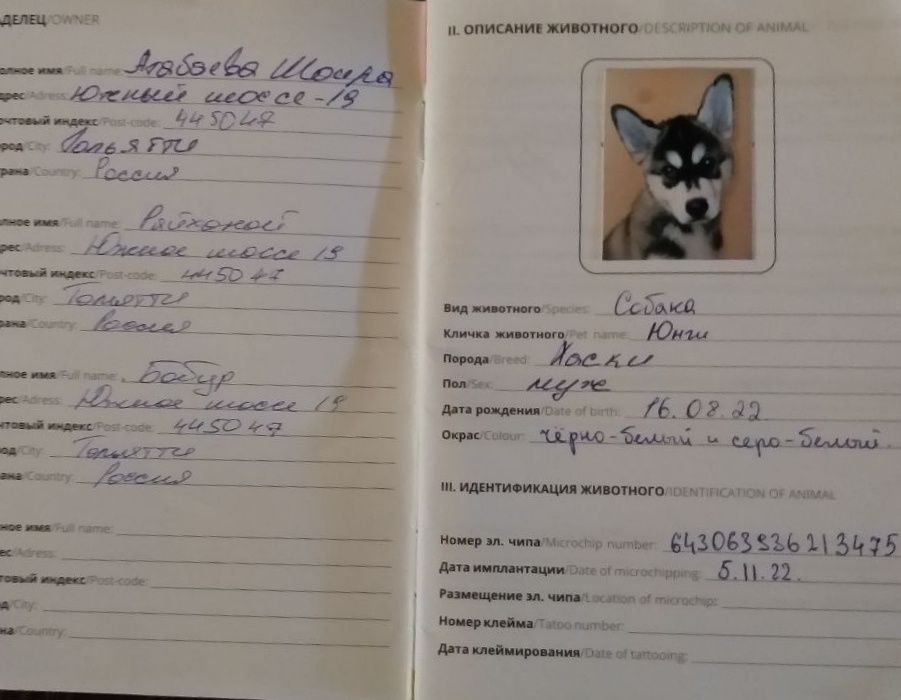 ДЕЛЕЦ/OWNER
олное имя/Full name: Атабаева Шоира
дрес/Adress: Южный шоссе-19
очтовый индекс/Post-code: 445047
род/City: Тольятти
рана/Country: Россия
лное имя/Full name: Райхоной
рес/Adress: Южное шоссе 19
чтовый индекс/Post-code: 445047
род/City: Толятти
рана/Country: Россия
ное имя/Full name: Бобур
рес/Adress: Южное шоссе 19
чтовый индекс/Post-code: 445047
од/City: Толятти
ана/Country: Россия
ное имя/Full name:
ес/Adress:
товый индекс/Post-code:
д/City:
на/Country:
II. ОПИСАНИЕ ЖИВОТНОГО/DESCRIPTION OF ANIMAL
Вид животного/Species: Собака
Кличка животного/Pet name: Юнги
Порода/Breed: Хаски
Пол/Sex: муж
Дата рождения/Date of birth: 16.08.22
Окрас/Colour: чёрно-белый и серо-белый.
III. ИДЕНТИФИКАЦИЯ ЖИВОТНОГО/IDENTIFICATION OF ANIMAL
Номер эл. чипа/Microchip number: 643063936213475
Дата имплантации/Date of microchipping: 5.11.22.
Размещение эл. чипа/Location of microchip:
Номер клейма/Tatoo number:
Дата клеймирования/Date of tattooing: